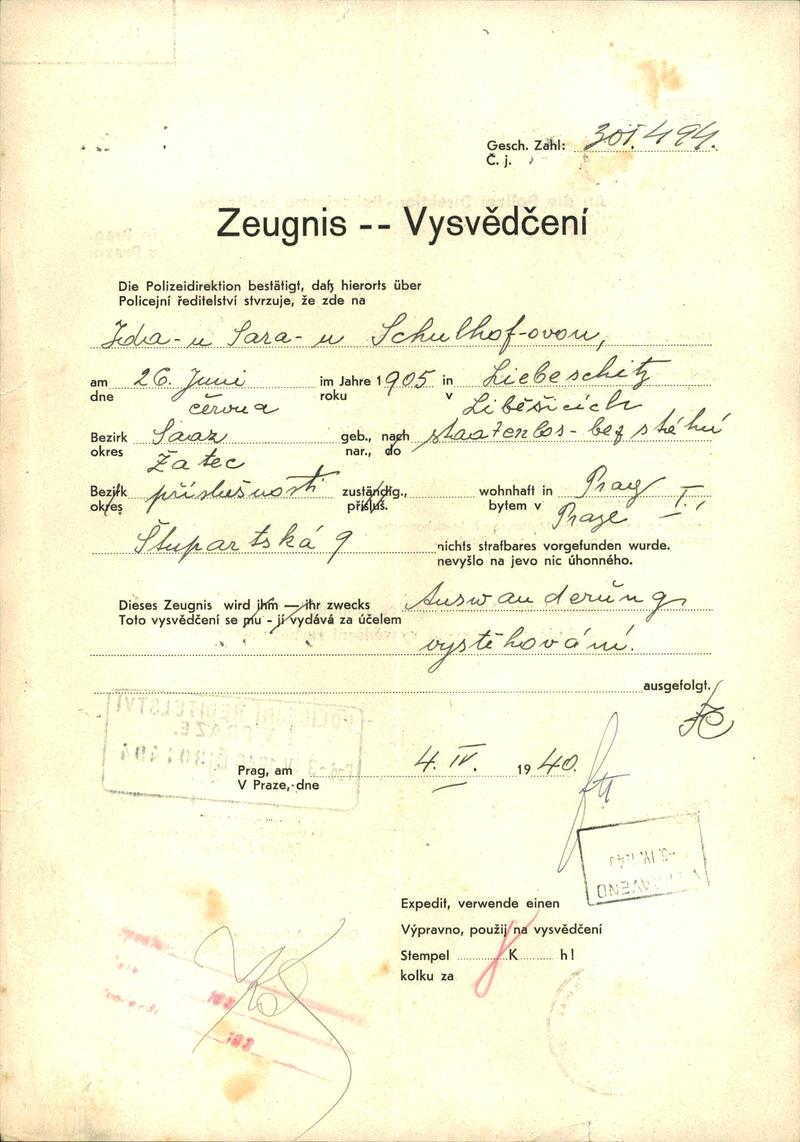 Gesch. Zahl: 301.494.
Č. j.
Zeugnis -- Vysvědčení
Die Polizeidirektion bestätigt, daß hierorts über
Policejní ředitelství stvrzuje, že zde na
Ida-u Sara-u Schulhof-ovou,
am 26. Juni im Jahre 1905 in Liebeschitz
dne června roku v Liběšicích
Bezirk Saaz geb., nach staatenlos - bez státní
okres Žatec nar., do
Bezirk příslušnosti zuständig., wohnhaft in Prag I.,
okres přísluš. bytem v Praze
Štupartská 9 nichts strafbares vorgefunden wurde.
nevyšlo na jevo nic úhonného.
Dieses Zeugnis wird ihm — ihr zwecks Auswanderung
Toto vysvědčení se mu - jí vydává za účelem
vystěhování.
ausgefolgt.
Prag, am 4. IV. 1940.
V Praze, dne
Expedit, verwende einen
Výpravno, použij na vysvědčení
Stempel K h!
kolku za